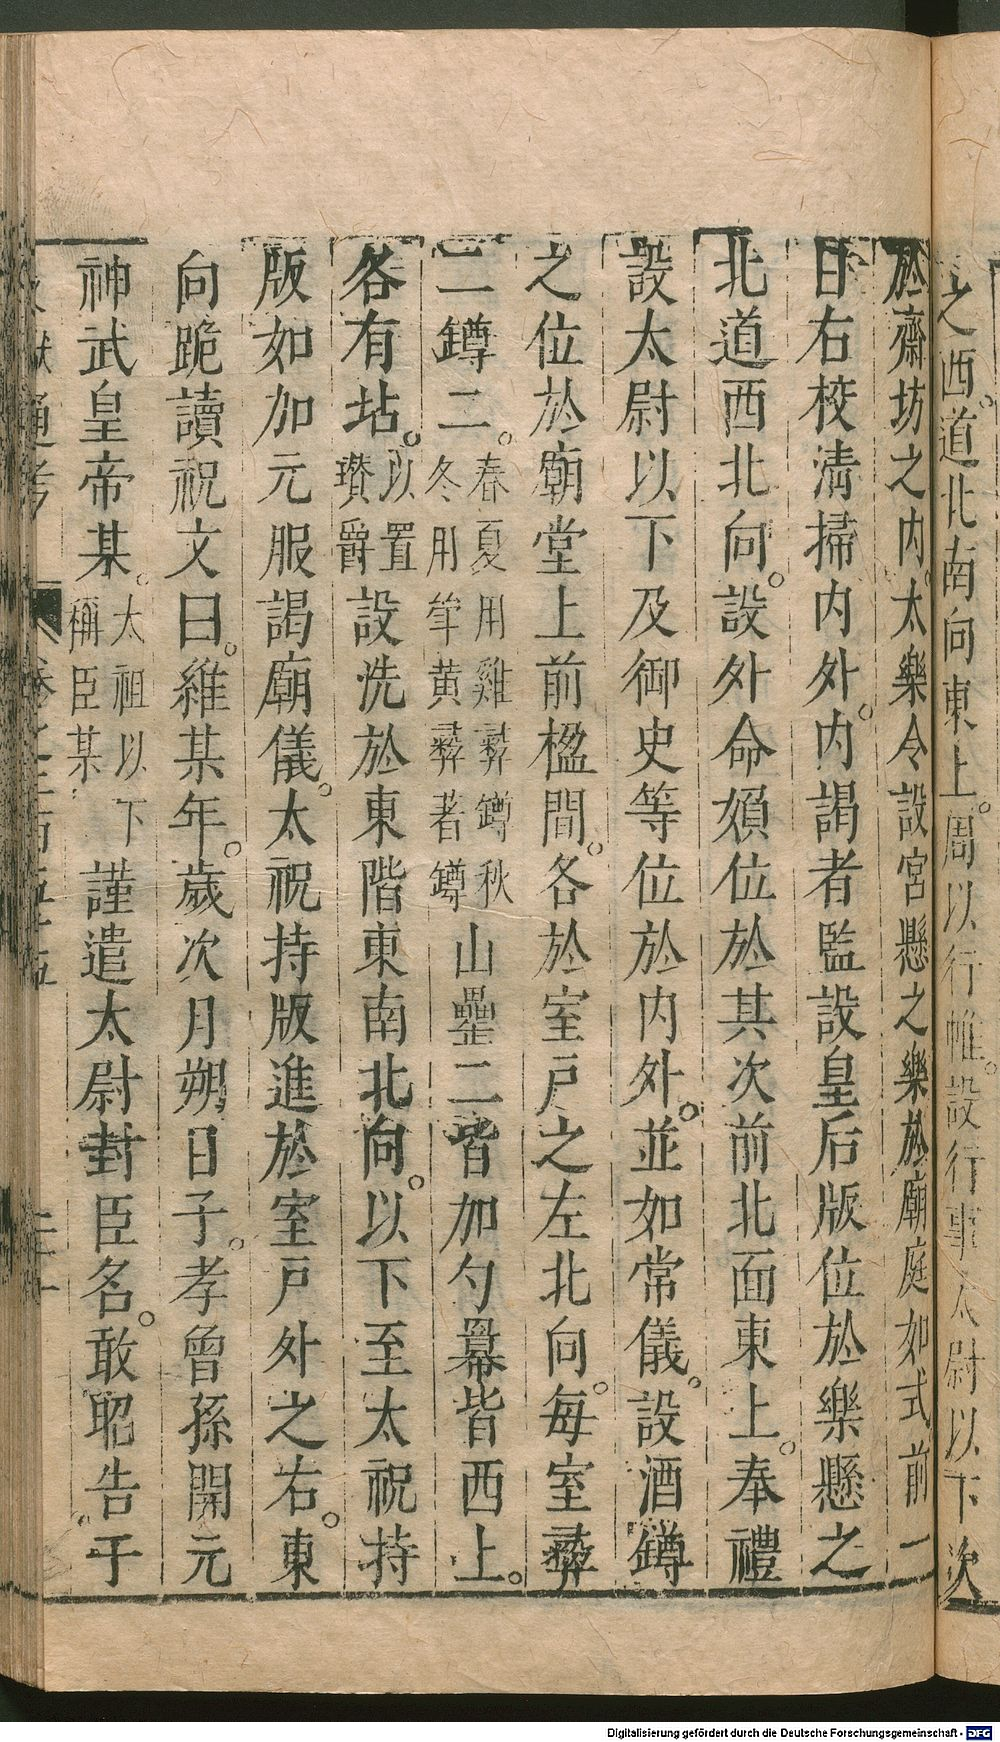 之西道北南向東上。周以行帷。設行事太尉以下次
於齋坊之內。太樂令設宮懸之樂於廟庭如式前一
日右校清掃內外。內謁者監設皇后版位於樂懸之
北道西北向。設外命婦位於其次前北面東上。奉禮
設太尉以下及御史等位於內外。並如常儀。設酒罇
之位於廟堂上前楹間。各於室戶之左北向。每室彝
二罇二。春夏用雞彝罇秋冬用斝黃彝著罇山罍二皆加勺羃皆西上。
各有坫。以置瓚爵設洗於東階東南北向。以下至太祝持
版如加元服謁廟儀。太祝持版進於室戶外之右。東
向跪讀祝文曰。維某年。歲次月朔日子。孝曾孫開元
神武皇帝某。太祖以下稱臣某謹遣太尉封臣名。敢昭告于
通考 卷
Digitalisierung gefördert durch die Deutsche Forschungsgemeinschaft - DFG